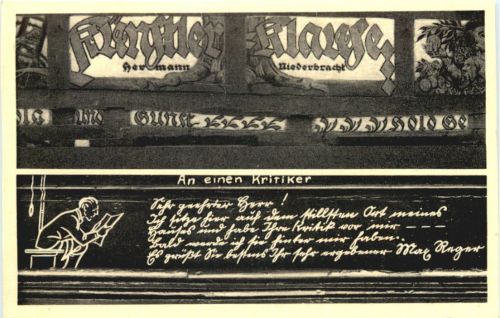 Künstler Klause
Hermann Niederbracht
und Gunst
hold
An einen Kritiker
Sehr geehrter Herr!
Ich sitze hier auf dem stillsten Ort meines
Hauses und habe Ihre Kritik vor mir – – – –
bald werde ich sie hinter mir haben.
Es grüßt Sie bestens Ihr sehr ergebener Max Reger